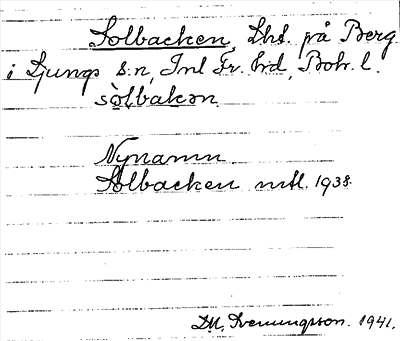 Solbacken, Lht. på Berg
i Ljungs s:n, Inl Fr. hd, Boh. l.
sòlbakən
Nynamn
Solbacken mtl. 1938.
Svenungsson. 1941.